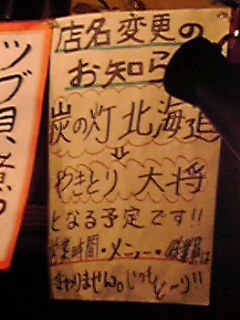 店名変更の
お知ら
炭の灯 北海道
⇓
やきとり 大将
となる予定です!!
営業時間・メニュー・従業員は
変わりません。いつもど〜り!!
ツブ貝